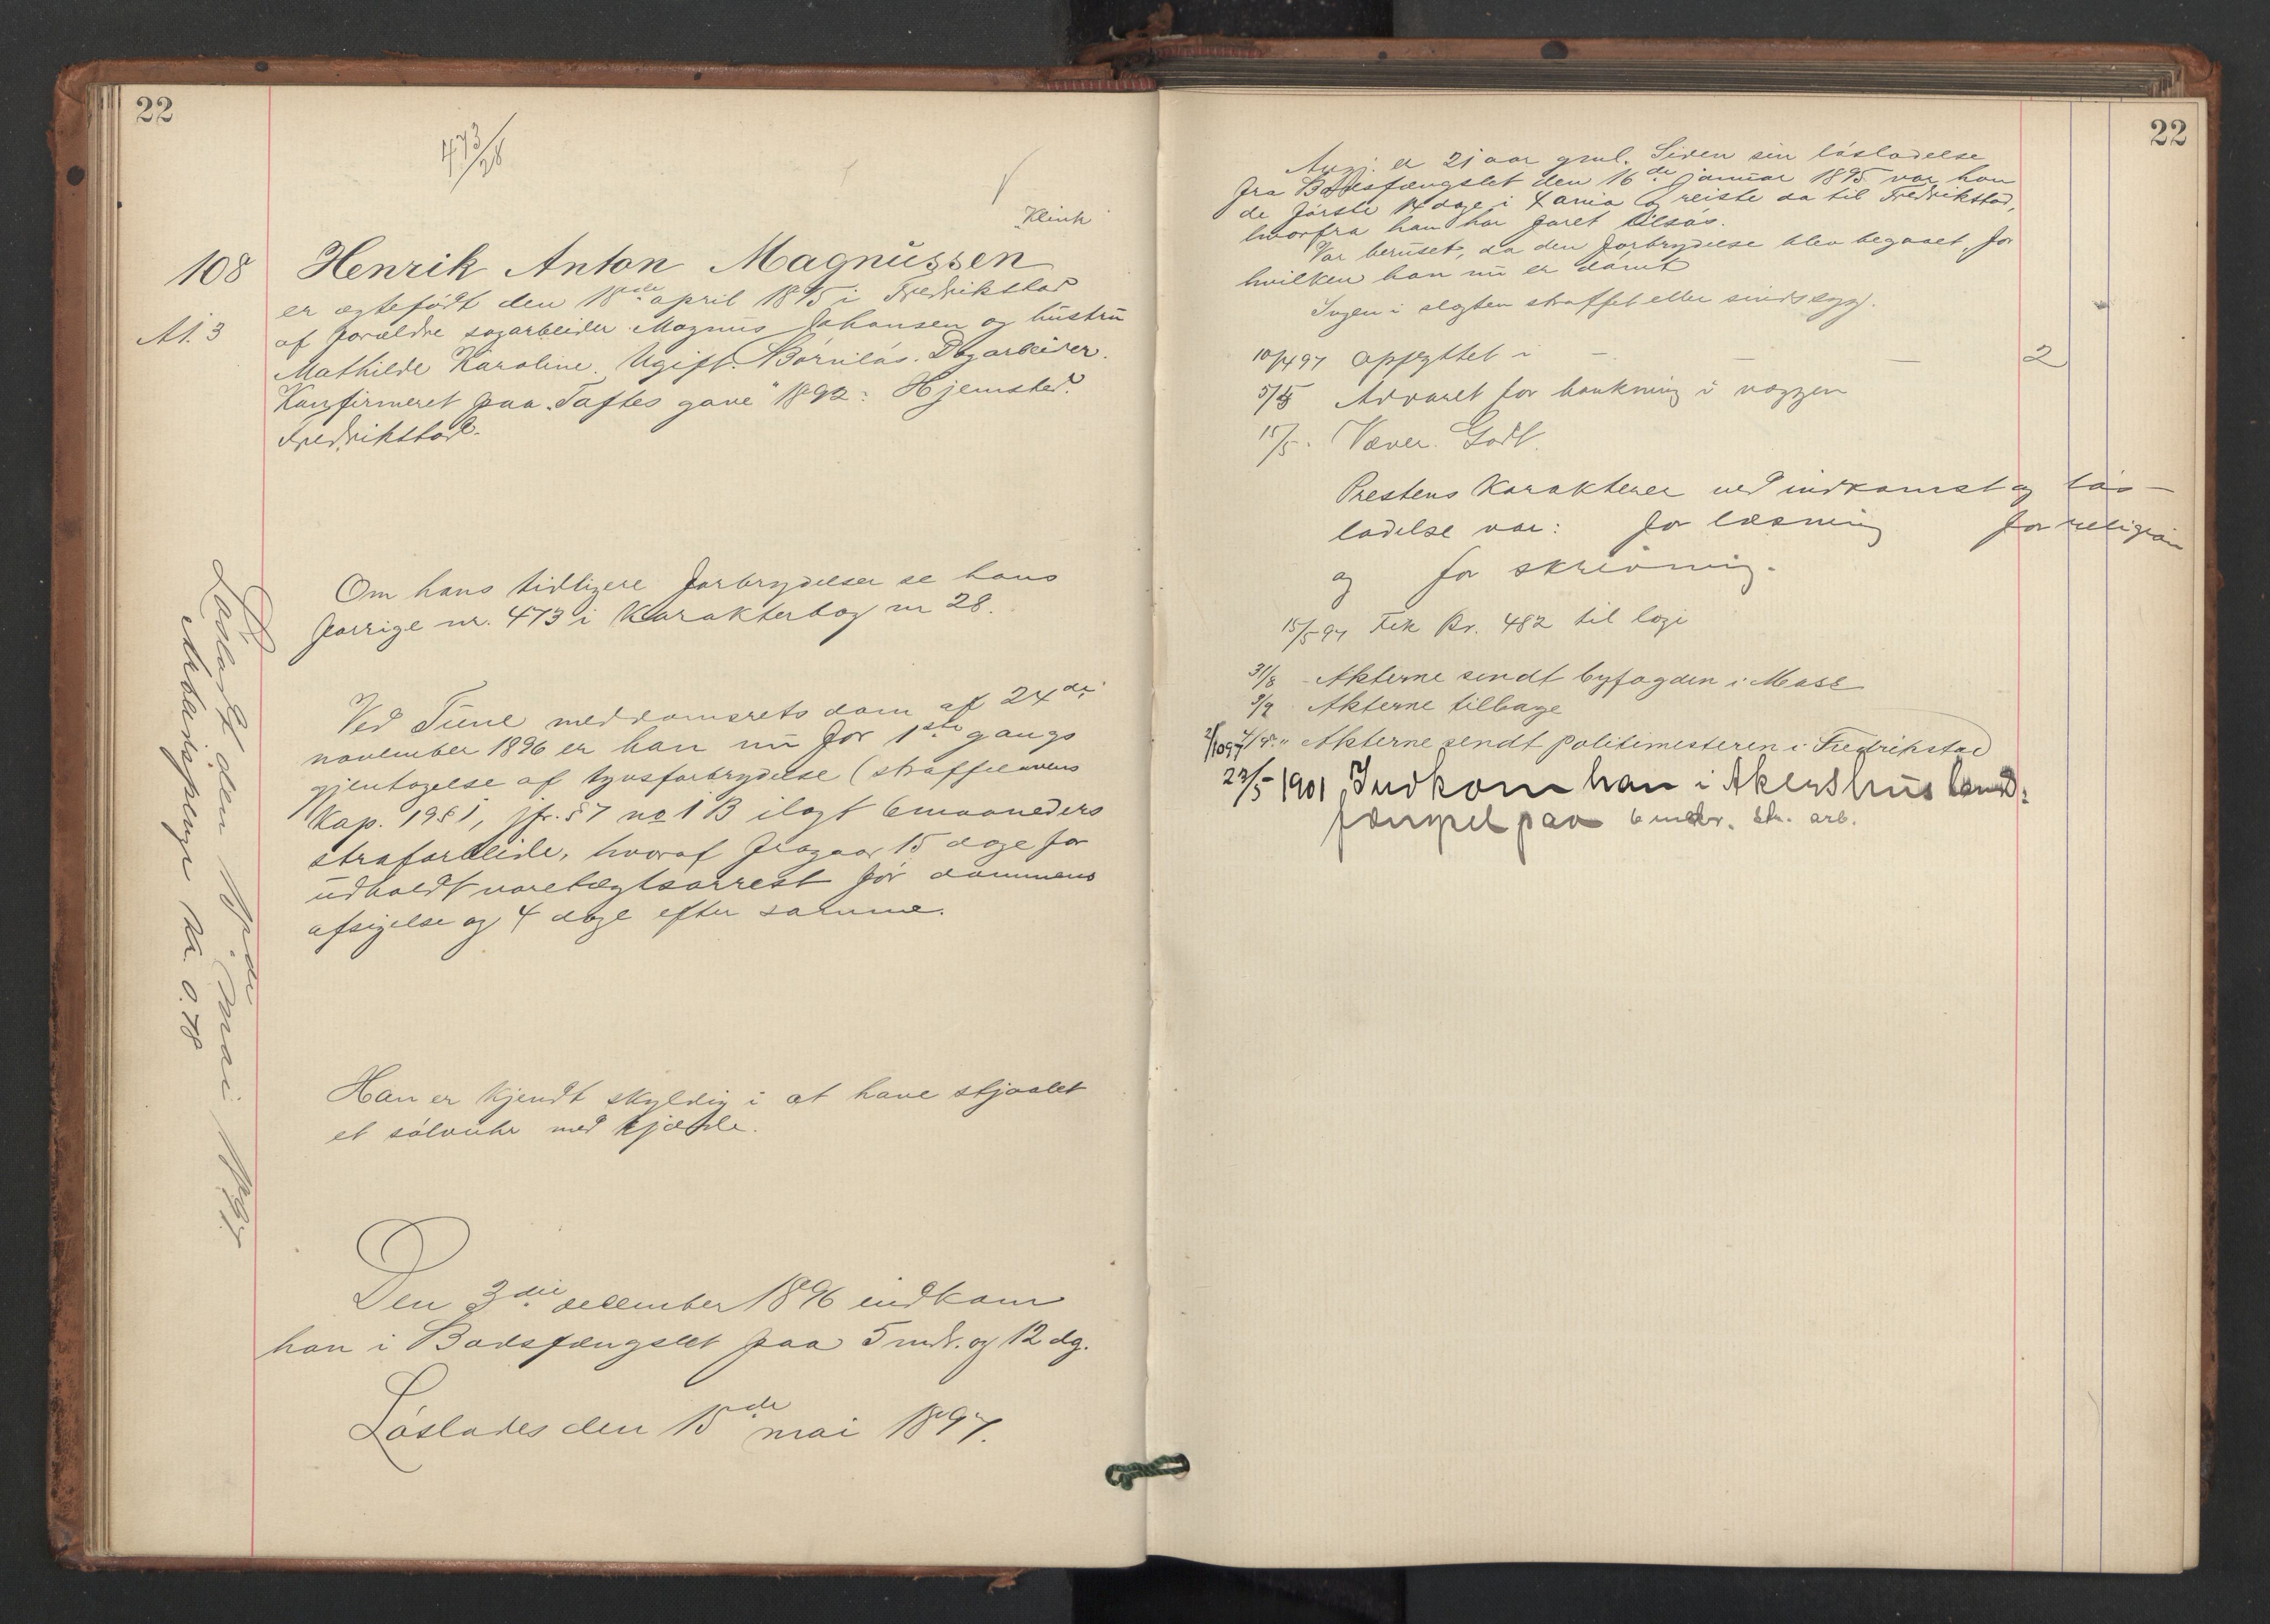 22
473/28
Klink
108
Henrik Anton Magnussen
er ægtefødt den 18de april 1875 i Fredrikstad
At. 3
af forældre sagarbeider Magnus Johansen og hustru
Mathilde Karoline. Ugift. Barnløs. Dagarbeider.
Konfirmeret paa "Toftes gave" 1892. Hjemsted:
Fredrikstad.
Om hans tidligere forbrydelser se hans
forrige nr. 473 i Karakterbog nr 28.
Ved Tune meddomsrets dom af 24de
november 1896 er han nu for 1ste gangs
gjentagelse af tyvsforbrydelse (straffelovens
Kap. 19 § 1, jfr. § 7 no 1 B ilagt 6 maaneders
strafarbeide, hvoraf fragaar 15 dage for
udholdt varetægtsarrest før dommens
afsigelse og 4 dage efter samme.
Han er kjendt skyldig i at have stjaalet
et sølvuhr med kjæde.
Den 3die december 1896 indkom
han i Bodsfængslet paa 5 mdr. og 12 dg.
Løslades den 15de mai 1897.
Løsladt den 15de mai 1897.
Arbeidspenge kr. 0.78
22
Ang. er 21 aar gml. Siden sin løsladelse
fra Bodsfængslet den 16de januar 1895 var han
de første 14 dage i Xania og reiste da til Fredrikstad,
hvorfra han har faret tilsøs.
Var beruset, da den forbrydelse blev begaaet, for
hvilken han nu er dømt
Ingen i slegten straffet eller sindssyg.
10/4 97 Opflyttet i - - - 2
5/5 Advaret for bankning i væggen
15/5. Væver. Godt.
Prestens Karakterer ved indkomst og løs-
ladelse var: for læsning for religion
og for skrivning.
15/5 97 Fik Kr. 482 til logi
31/8 Akterne sendt byfogden i Moss
3/9 Akterne tilbage
2/10 97 Akterne sendt politimesteren i Fredrikstad
23/5 1901 Indkom han i Akershus lands-
fængsel paa 6 mdr. str. arb.